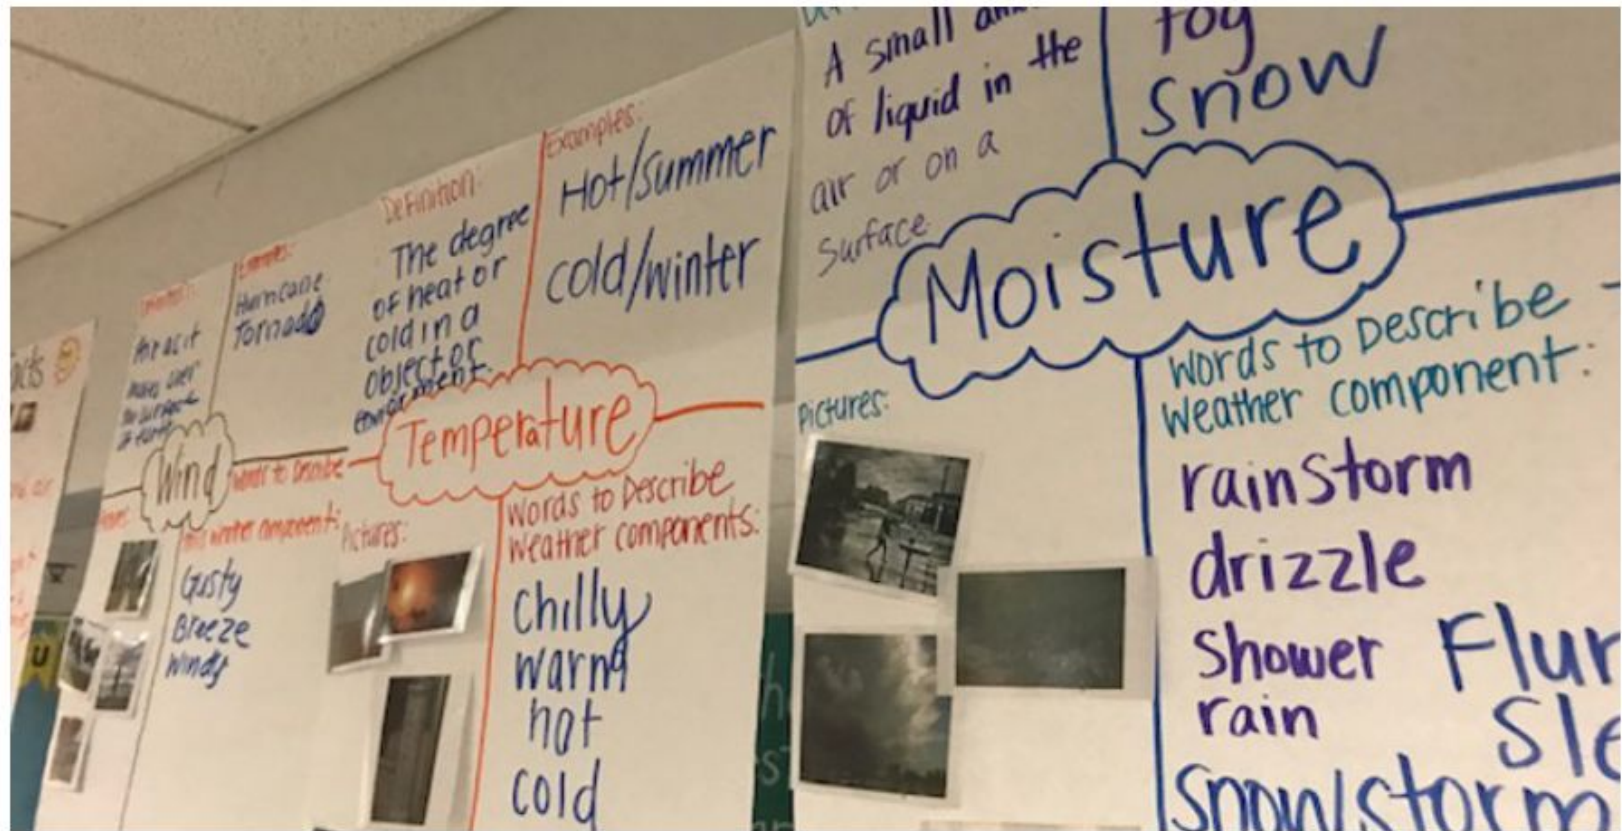 acts
Examples:
Hurricane
Tornado
Wind
words to Describe
this weather components:
Gusty
Breeze
Windy
U
Definition:
The degree
of heat or
cold in a
object or
Examples:
Hot/summer
cold/winter
Temperature
Pictures:
Words to Describe
Weather components:
Chilly
warm
hot
cold
A small
of liquid in the
air or on a
Surface
fog
snow
Moisture
Pictures:
Words to Describe -
Weather component:
rainstorm
drizzle
shower Flur
rain Sle
Snow/storm